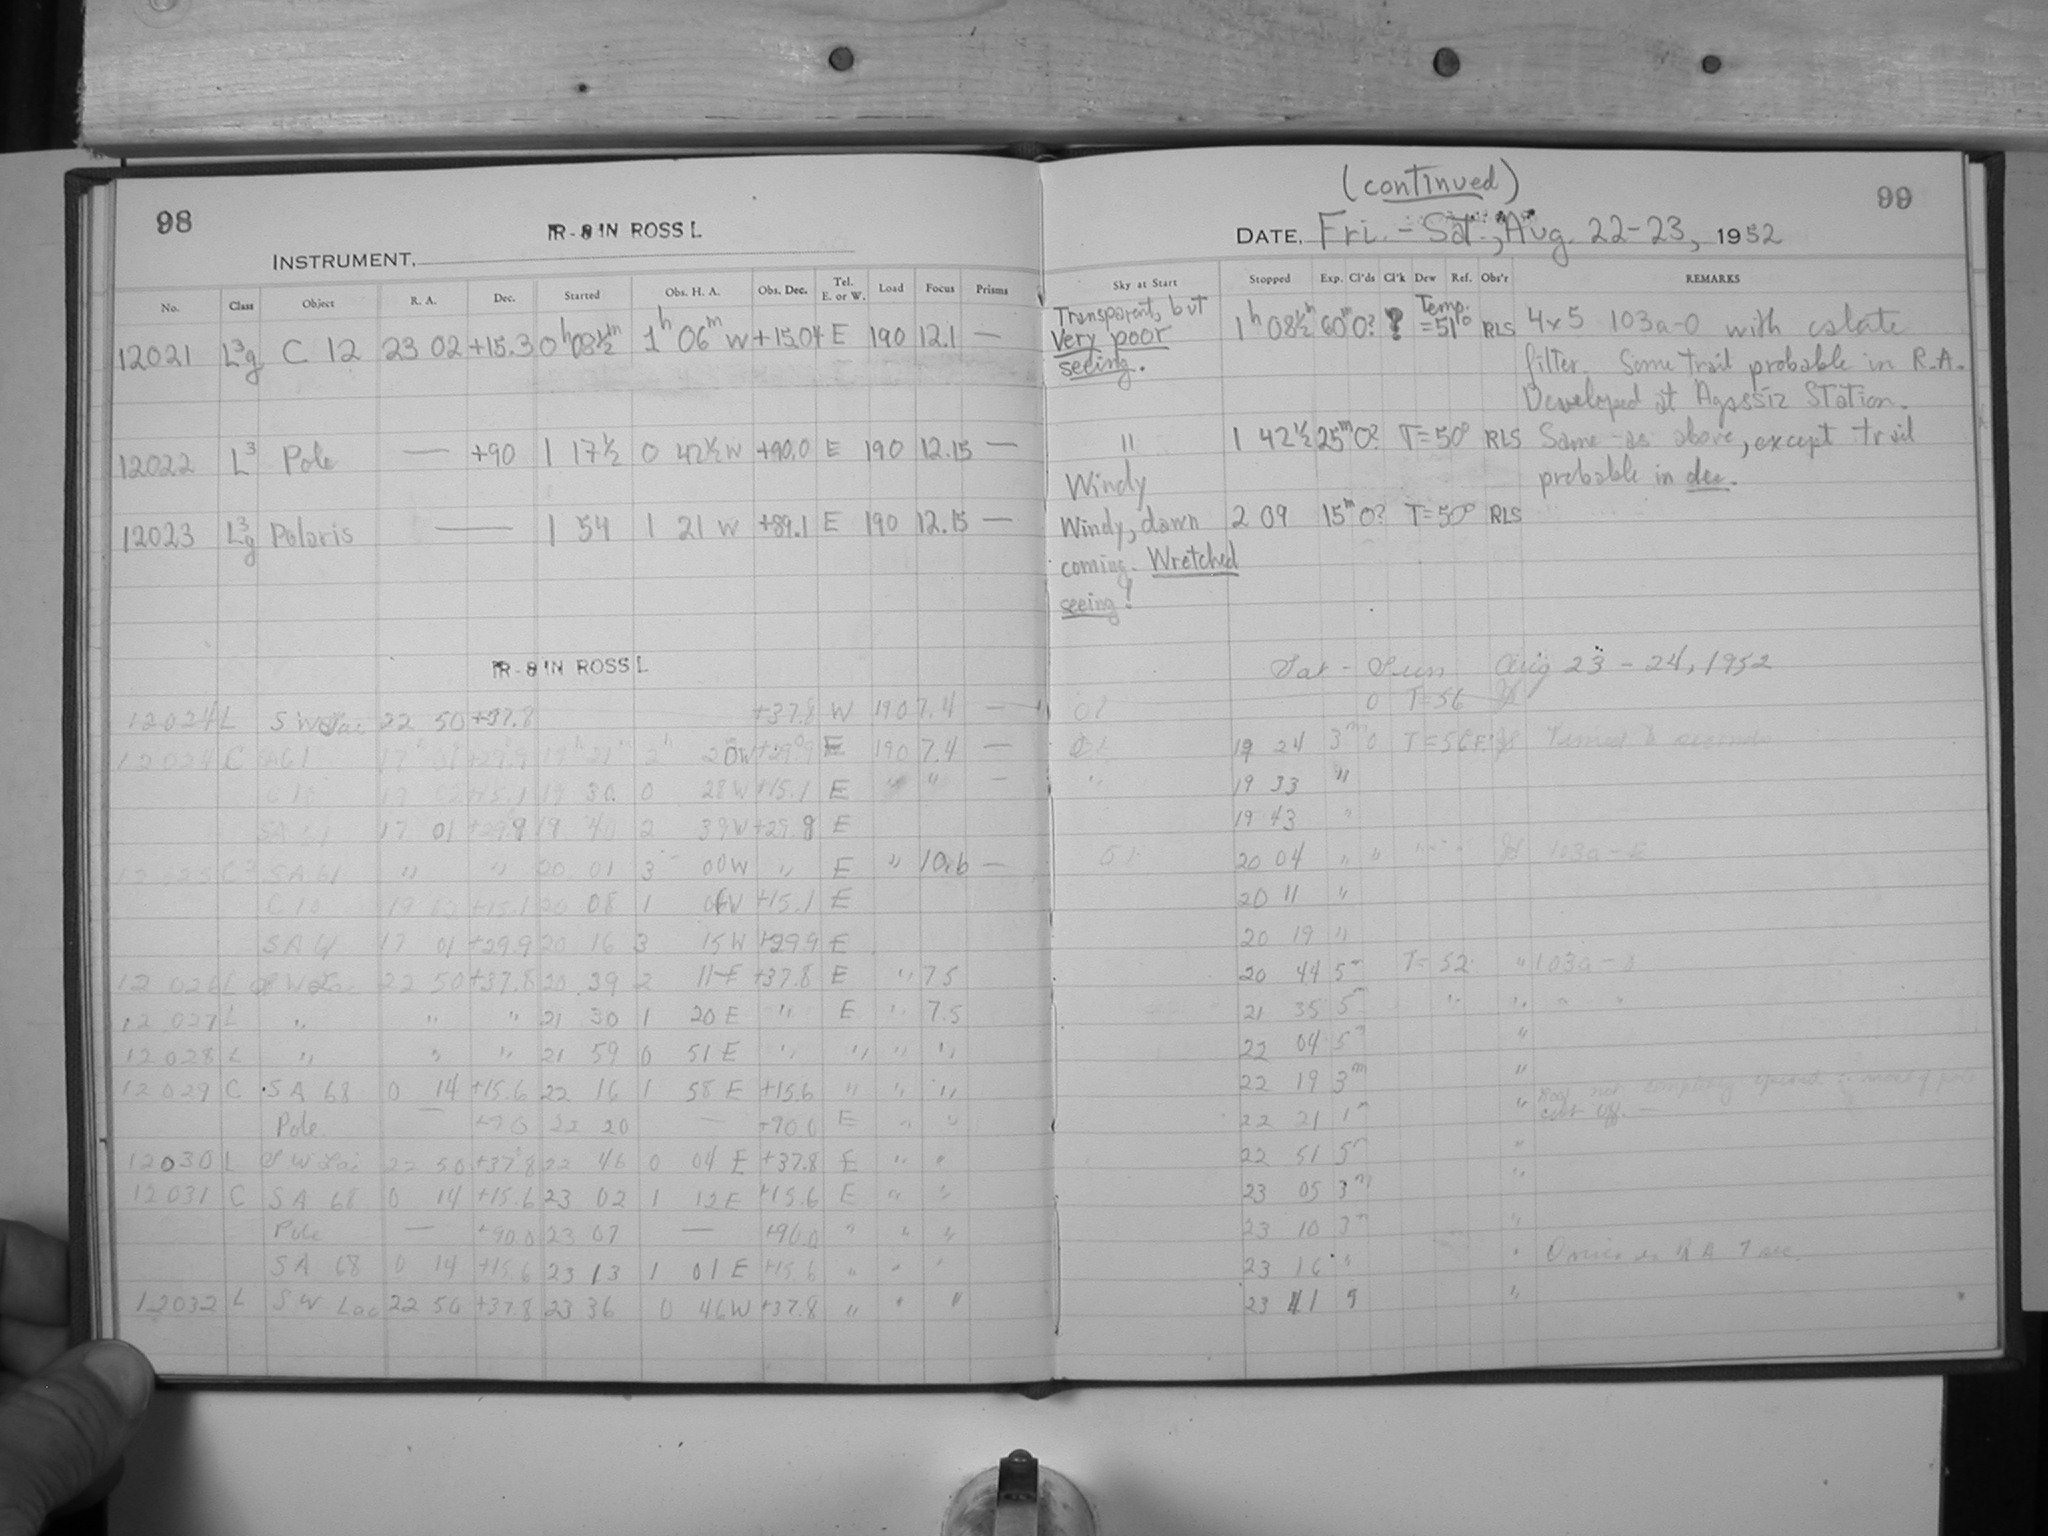 98
IR-8 IN ROSS L
INSTRUMENT,
No. Class Object R. A. Dec. Started Obs. H. A. Obs. Dec. Tel. E. or W. Load Focus Prisms
12021 L3g C 12 23 02 +15.3 0h 08½m 1h 06m W +15.04 E 190 12.1 —
12022 L3 Pole — +90 1 17½ 0 42½ W +90.0 E 190 12.15 —
12023 L3g Polaris — 1 54 1 21 W +89.1 E 190 12.15 —
IR-8 IN ROSS L
12024 L SW Lac 22 50 +37.8 +37.8 W 190 7.4 —
12024 C 17 01 +29.9 19h 21m 2h 20W +29.9 E 190 7.4 —
C 10 19 02 +15.1 19 30 0 28W +15.1 E " " —
SA 61 17 01 +29.9 19 40 2 39W +29.8 E
12025 SA 61 " " 20 01 3 00W " E " 10.6 —
C 10 19 02 +15.1 20 08 1 06W +15.1 E
SA 61 17 01 +29.9 20 16 3 15W +29.9 E
12026 L SW Lac 22 50 +37.8 20 39 2 11 E +37.8 E " 7.5
12027 L " " " 21 30 1 20 E " E " 7.5
12028 L " " " 21 59 0 51 E " " " "
12029 C SA 68 0 14 +15.6 22 16 1 58 E +15.6 " " "
Pole — +90 22 20 — +90.0 E " "
12030 L SW Lac 22 50 +37.8 22 46 0 04 E +37.8 E " "
12031 C SA 68 0 14 +15.6 23 02 1 12 E +15.6 E " "
Pole — +90.0 23 07 — +90.0 " " "
SA 68 0 14 +15.6 23 13 1 01 E +15.6 " " "
12032 L SW Lac 22 50 +37.8 23 36 0 46W +37.8 " " "
(continued)
99
DATE, Fri. - Sat., Aug. 22-23, 1952
Sky at Start Stopped Exp. Cl'ds Cl'k Dew Ref. Obs'r REMARKS
Transparent, but
Very poor
seeing.
1h 08½m 60m 0? ? Temp. =51° RLS 4x5 103a-O with
filter. Some trail probable in R.A.
Developed at Agassiz Station.
" 1 42½ 25m 0? T=50° RLS Same as above, except trail
probable in dec.
Windy
Windy, dawn 2 09 15m 0? T=50° RLS
coming. Wretched
seeing!
Sat - Sun Aug 23 - 24, 1952
0 T=56
19 24 3m 0 T=56
" 19 33 "
19 43 "
20 04 " " 103a-E
20 11 "
20 19 "
20 44 5m T=52 " 103a-
21 35 5m " " "
22 04 5m "
22 19 3m "
22 21 1m " Roof not completely opened
cut off. —
22 51 5m "
23 05 3m "
23 10 3m "
23 16 " " RA 7 sec.
23 41 5 "